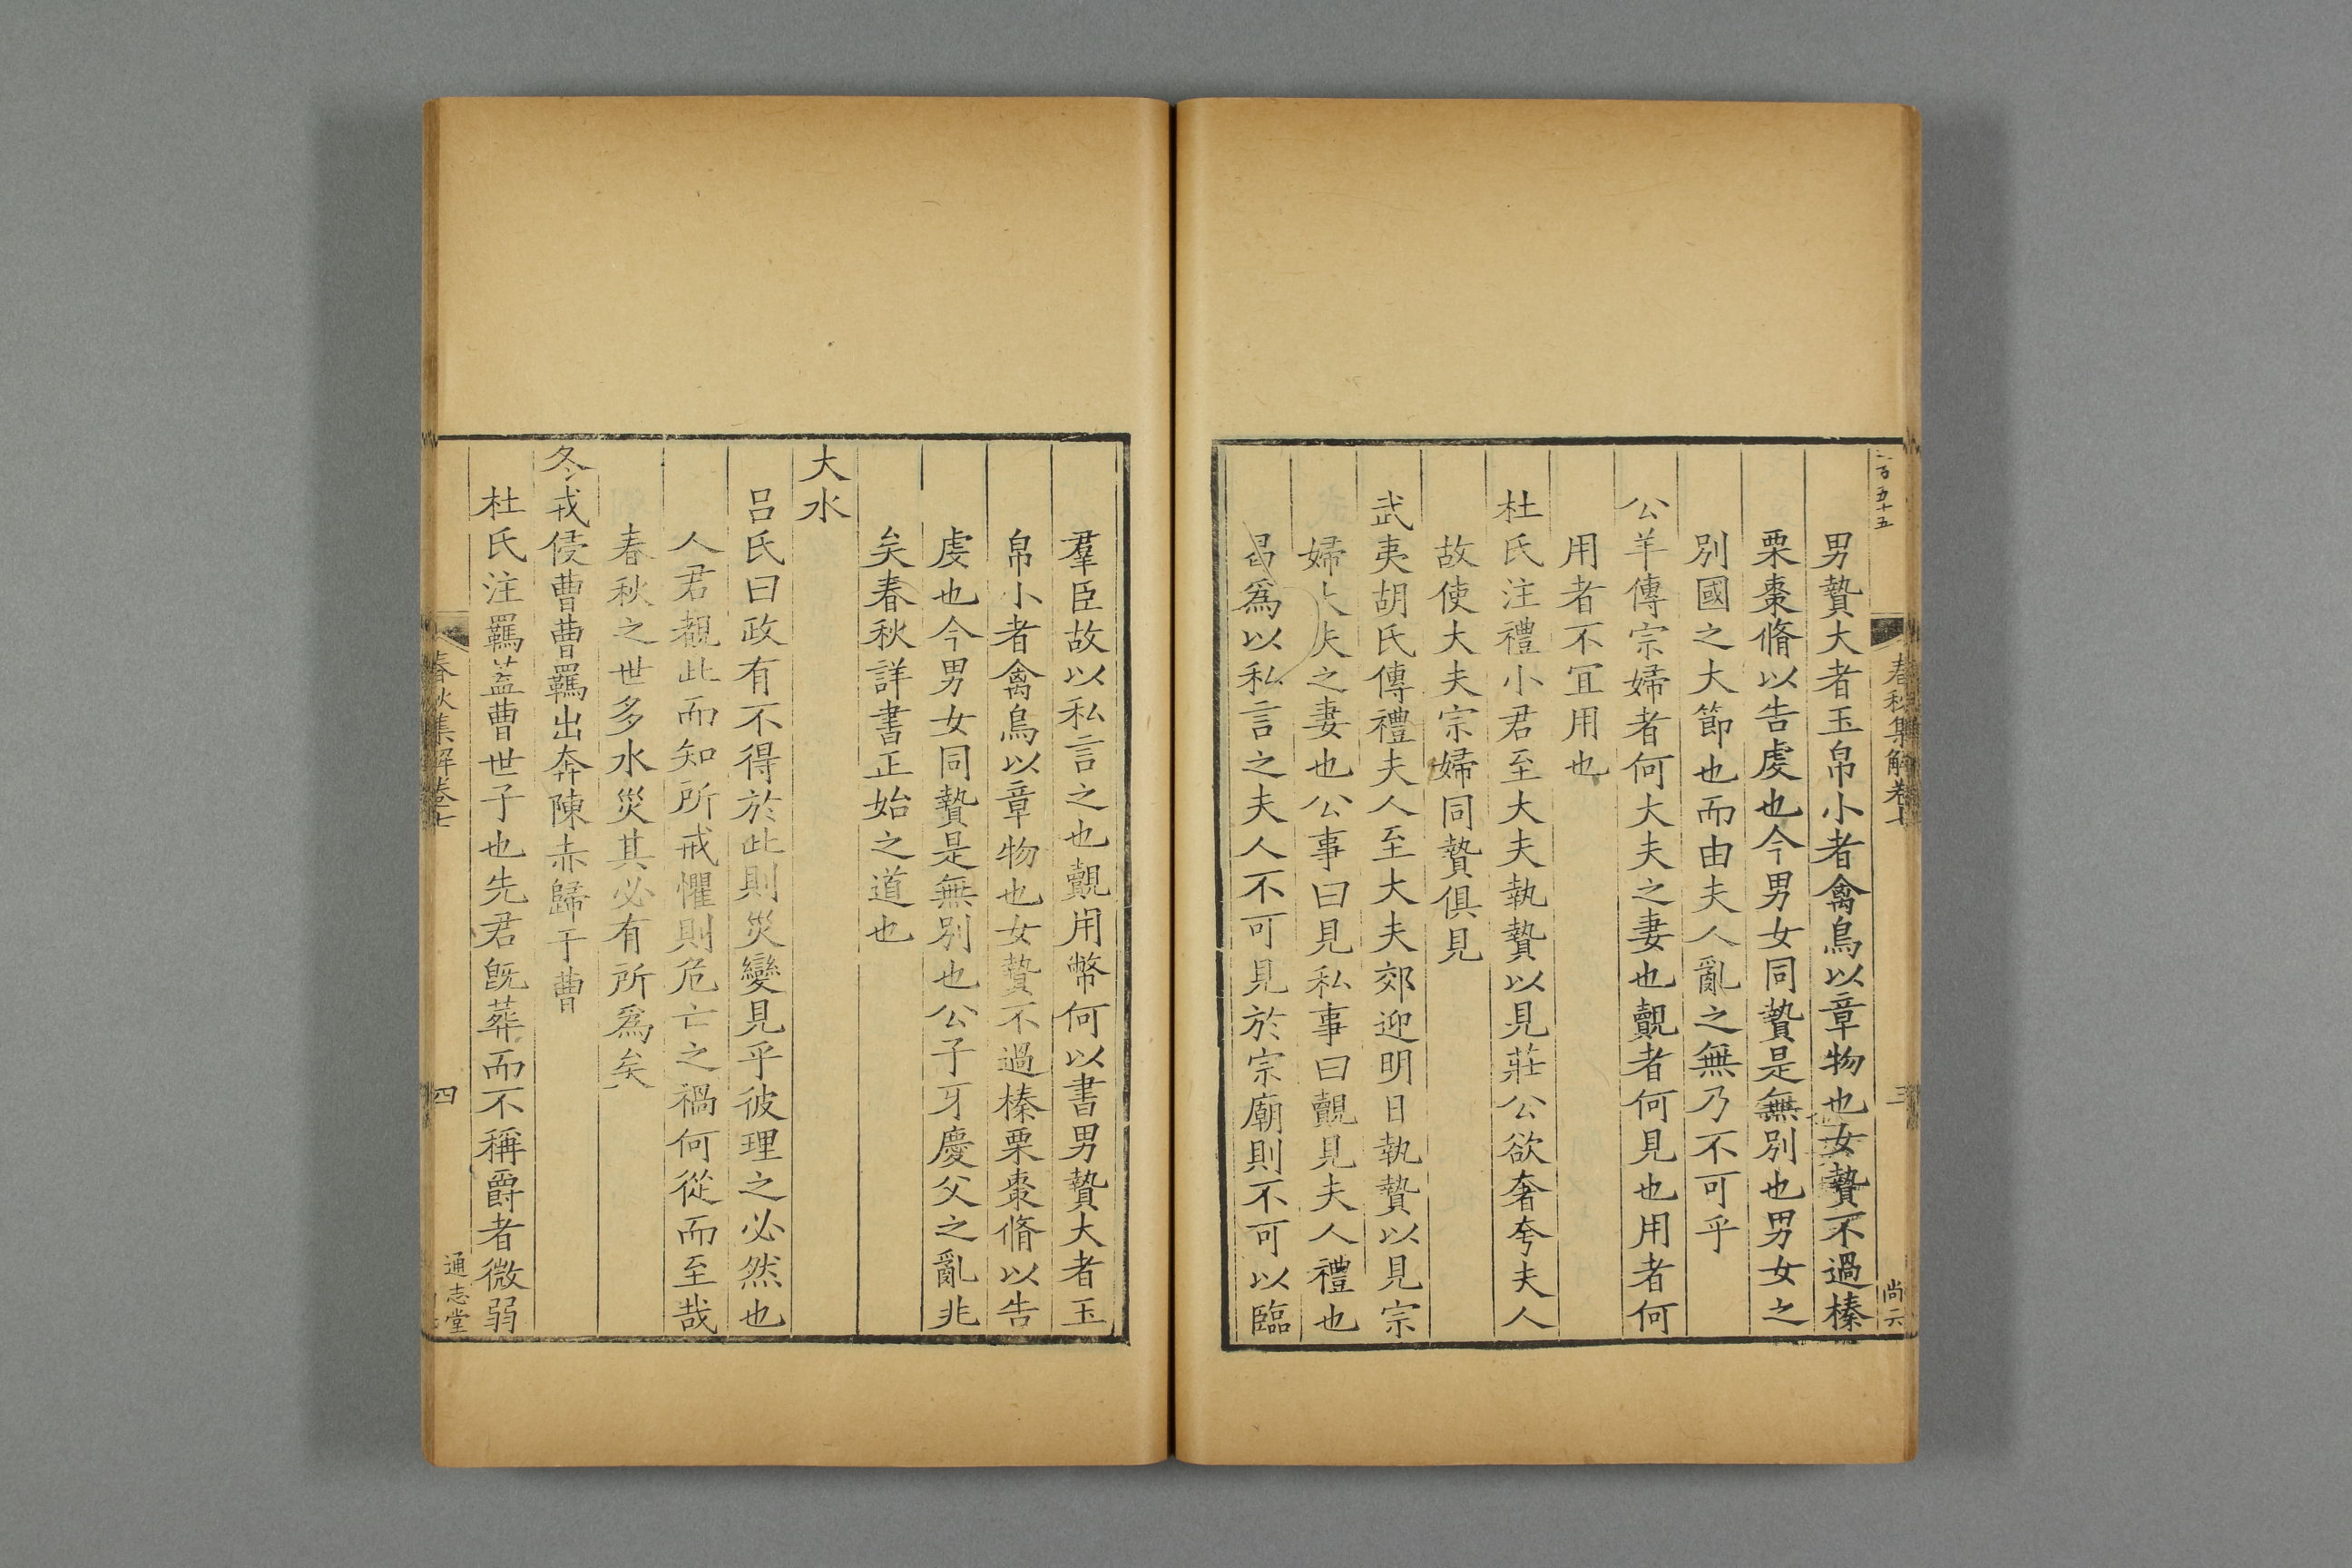 二百五十五
春秋集解卷七
三
尚六
男贄大者玉帛小者禽鳥以章物也女贄不過榛
栗棗脩以告虔也今男女同贄是無別也男女之
別國之大節也而由夫人亂之無乃不可乎
公羊傳宗婦者何大夫之妻也覿者何見也用者何
用者不宜用也
杜氏注禮小君至大夫執贄以見莊公欲奢夸夫人
故使大夫宗婦同贄俱見
武夷胡氏傳禮夫人至大夫郊迎明日執贄以見宗
婦大夫之妻也公事曰見私事曰覿見夫人禮也
曷爲以私言之夫人不可見於宗廟則不可以臨
羣臣故以私言之也覿用幣何以書男贄大者玉
帛小者禽鳥以章物也女贄不過榛栗棗脩以告
虔也今男女同贄是無別也公子牙慶父之亂兆
矣春秋詳書正始之道也
大水
呂氏曰政有不得於此則災變見乎彼理之必然也
人君觀此而知所戒懼則危亡之禍何從而至哉
春秋之世多水災其必有所爲矣
冬戎侵曹曹羈出奔陳赤歸于曹
杜氏注羈蓋曹世子也先君旣葬而不稱爵者微弱
春秋集解卷七
四
通志堂